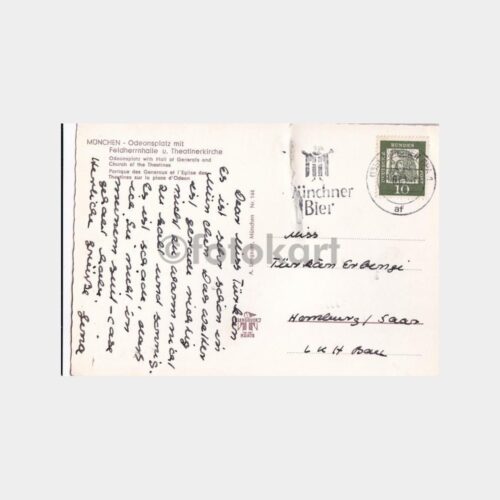 MÜNCHEN - Odeonsplatz mit
Feldherrnhalle u. Theatinerkirche
Odeonsplatz with Hall of Generals and
Church of the Theatines
Portique des Generaux et l'Eglise des
Theatines sur la place d'Odeon
Dear Miss Türkân
Es ist sehr schön in
München. Das Wetter
ist gerade richtig
nicht zu warm nicht
zu kalt und sonnig.
Es ist schade, dass
ich Sie nicht in
meinem suit-case
gehabt habe.
Herzliche Grüße
München Nr. 144
©fotokart
Münchner
Bier
MÜNCHEN
10
af
Miss
Türkân
Homburg/Saar
LKH Bau